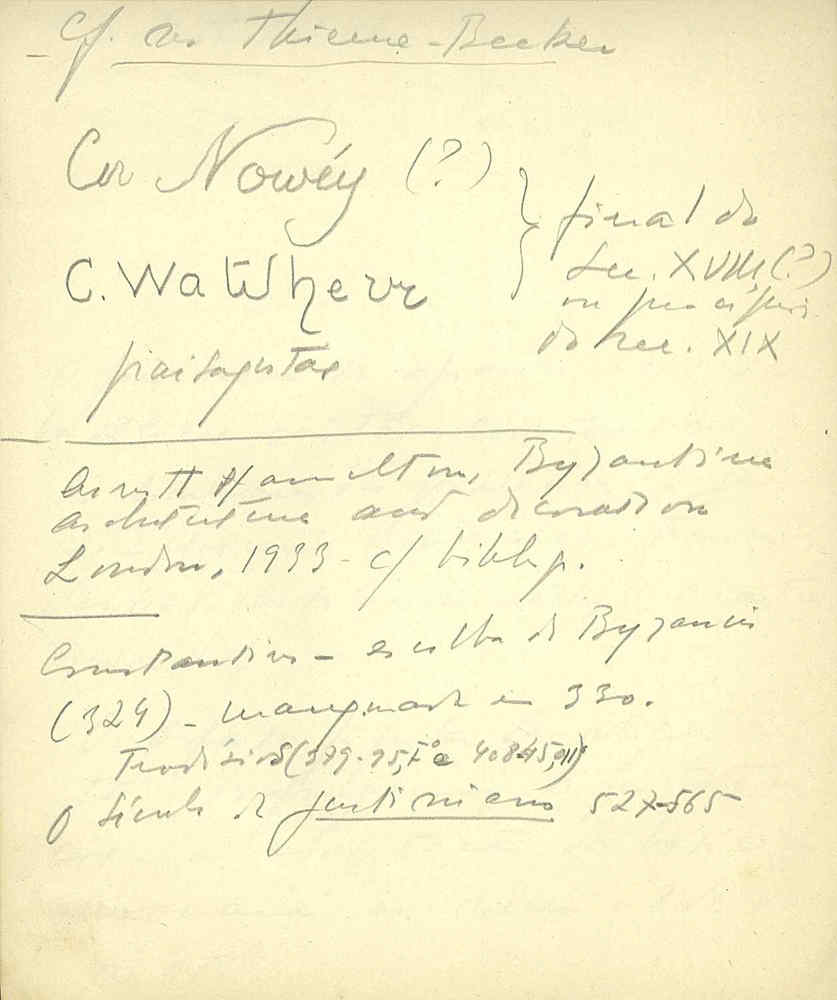 Cf. no Thieme-Becker
Cor Nowéy (?)
C. Watshevr
paisagistas
final do
Sec. XVIII (?)
ou principio
do sec. XIX
Arnott Hamilton, Byzantine
architecture and decoration
London, 1933 - c/ bibliogr.
Constantino - escolha de Byzancio
(324) - inaugurada em 330.
Teodósios (379-95, Iº e 408-45, II)
O século de Justiniano 527-565